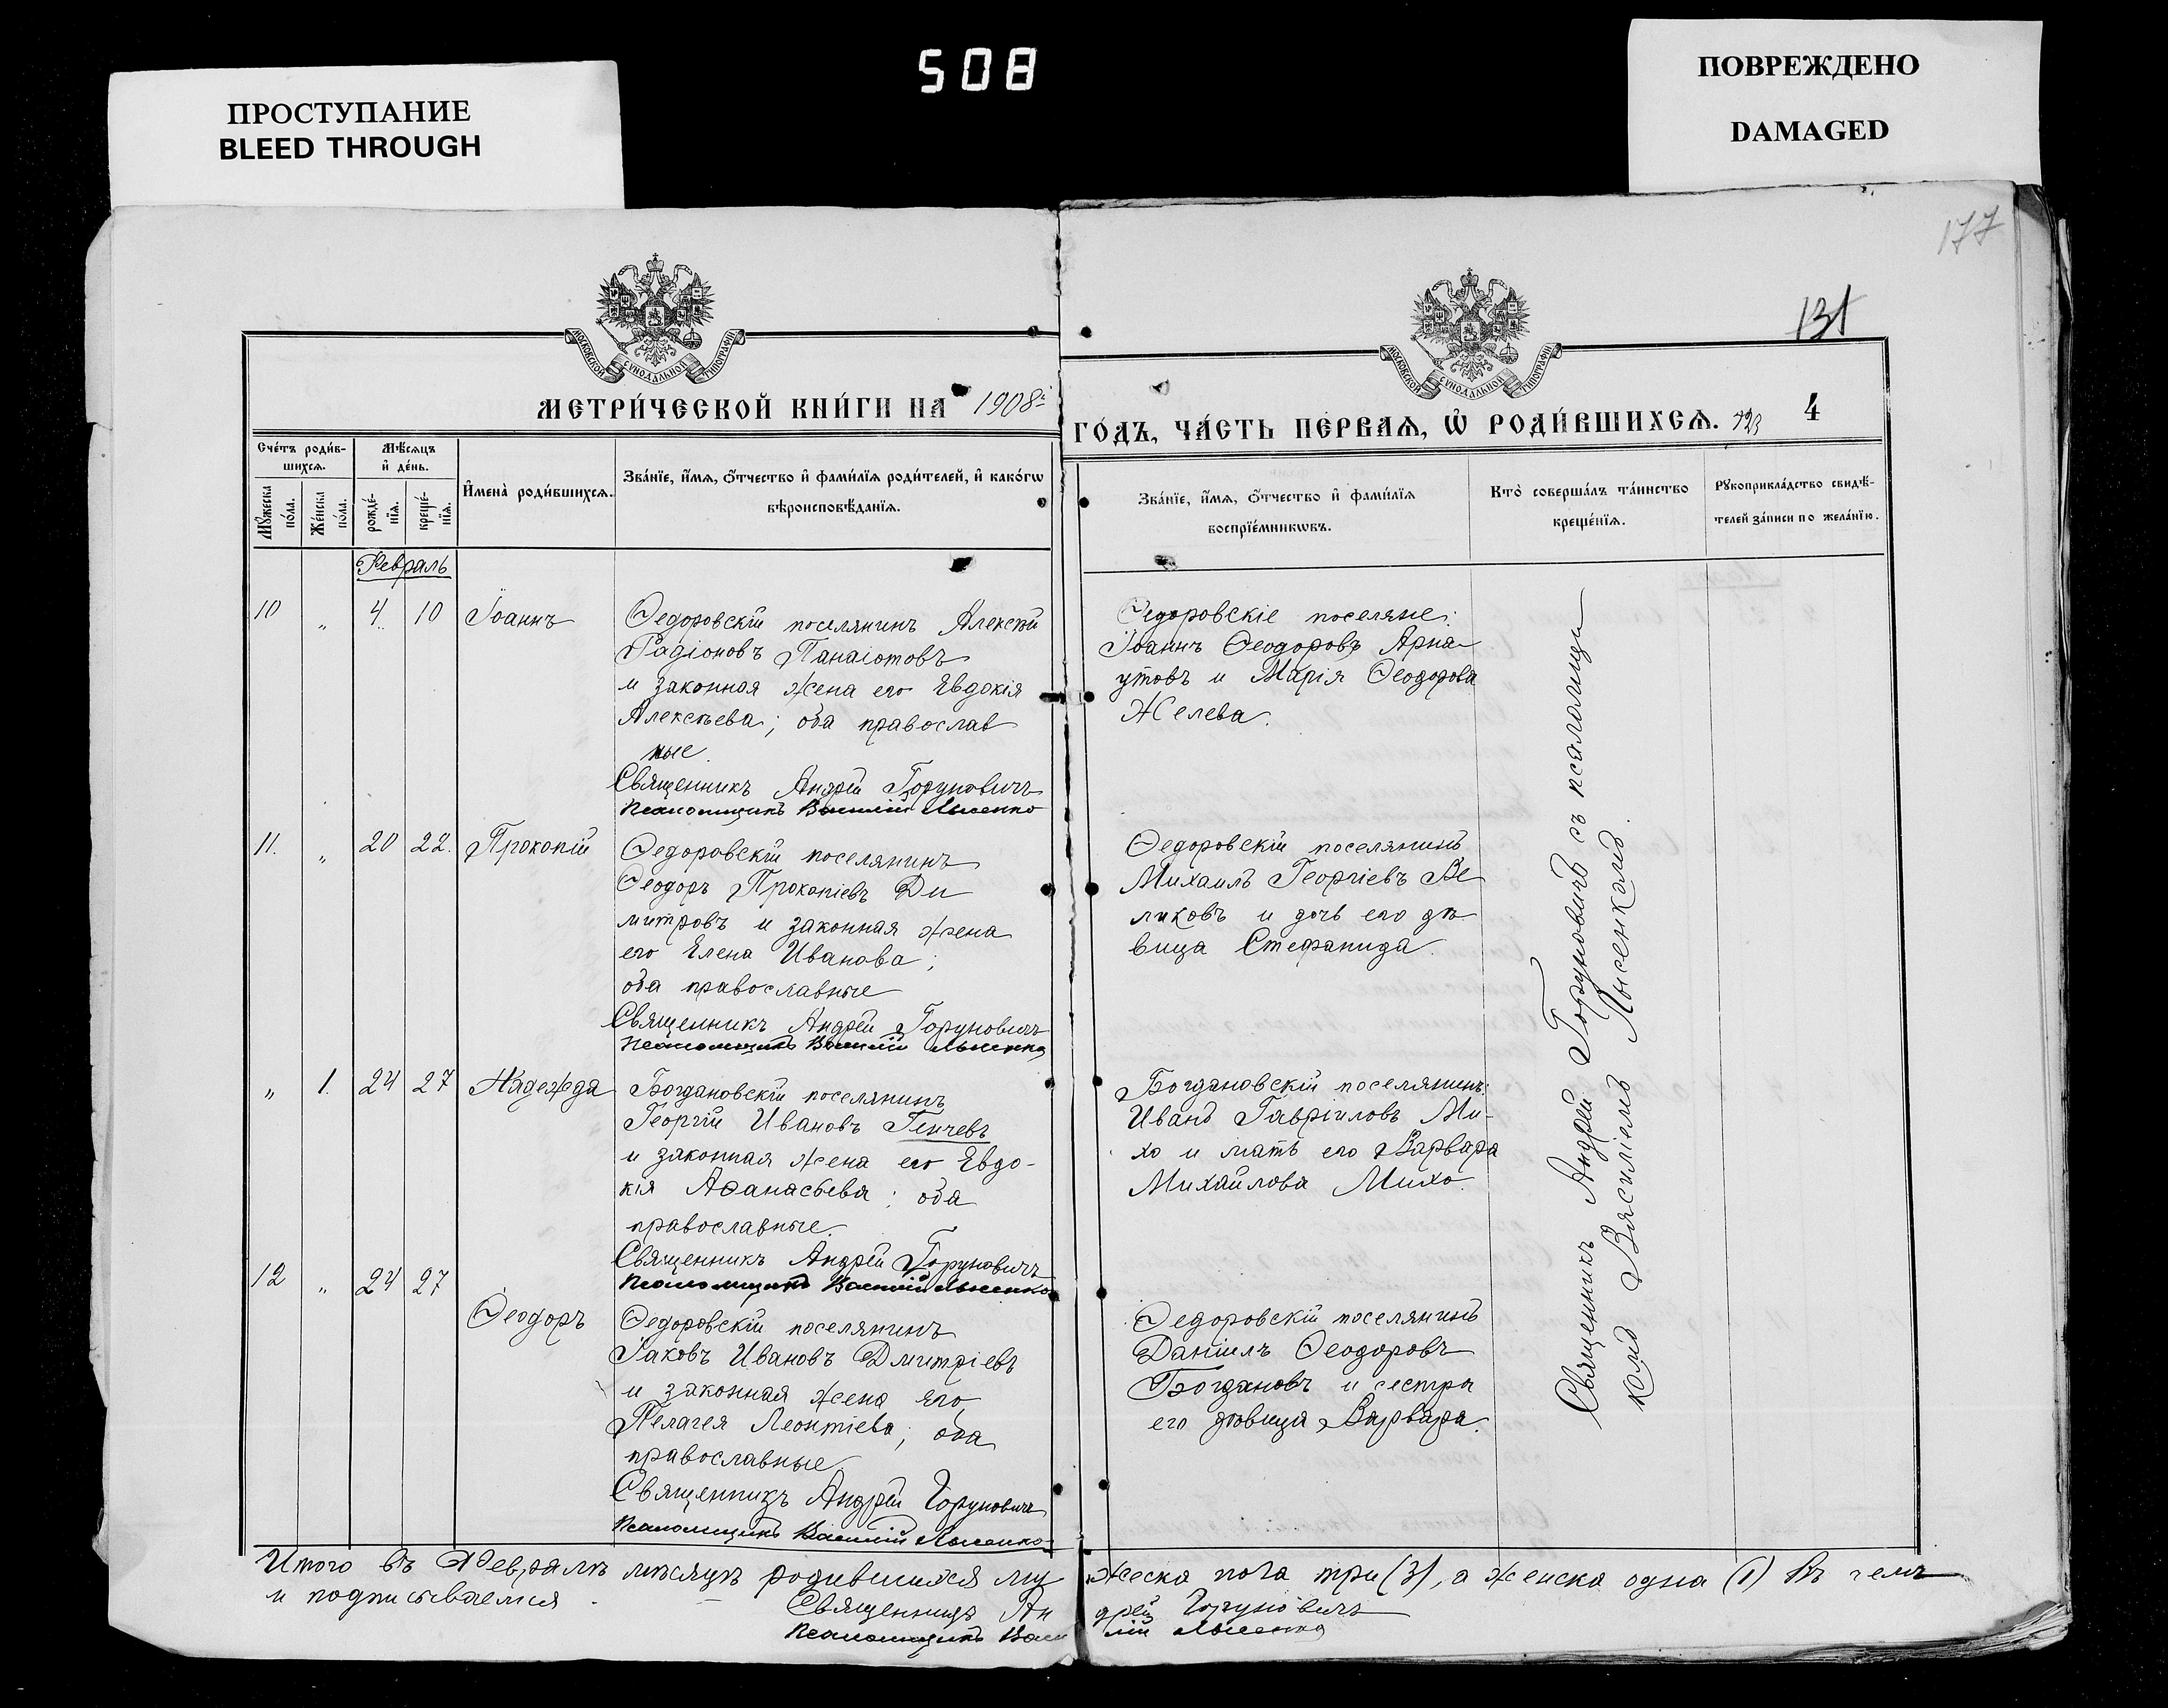 508
ПРОСТУПАНИЕ
BLEED THROUGH
ПОВРЕЖДЕНО
DAMAGED
177
131
МОСКОВСКОЙ СѴНОДАЛЬНОЙ ТИПОГРАФІИ
МОСКОВСКОЙ СѴНОДАЛЬНОЙ ТИПОГРАФІИ
МЕТРИ́ЧЕСКОЙ КНИ́ГИ НА 1908й
ГО́ДЪ, ЧА́СТЬ ПЕ́РВАЯ, Ѡ РОДИ́ВШИХСѦ. 4
Сче́тъ роди́в-
шихсѧ.
Мѣ́сѧцъ
и҆ де́нь.
Му́жеска
по́ла.
Же́нска
по́ла.
рожде́-
нїѧ.
креще́-
нїѧ.
И҆мена̀ роди́вшихсѧ.
Зва́нїе, и҆́мѧ, ѻ҆́тчество и҆ фами́лїѧ роди́телей, и҆ како́гѡ
вѣроисповѣ́данїѧ.
Зва́нїе, и҆́мѧ, ѻ҆́тчество и҆ фами́лїѧ
воспрїе́мникѡвъ.
Кто̀ соверша́лъ та́инство
креще́нїѧ.
Рꙋкоприкла́дство свидѣ́-
телей за́писи по жела́нїю.
Февраль
10 „ 4 10 Іоаннъ
Ѳедоровскій поселянинъ Алексѣй
Радіоновъ Панаіотовъ
и законная жена его Евдокія
Алексѣева; оба православ
ные.
Священникъ Андрей Горуновичъ
Псаломщикъ Василій Лысенко
Ѳедоровскіе поселяне:
Іоаннъ Ѳеодоровъ Арна-
утовъ и Марія Ѳеодорова
Желева.
11. „ 20 22. Прокопій
Ѳедоровскій поселянинъ
Ѳеодоръ Прокопіевъ Ди
митровъ и законная жена
его Елена Иванова;
оба православные
Священникъ Андрей Горуновичъ
Псаломщикъ Василій Лысенко
Ѳедоровскій поселянинъ
Михаилъ Георгіевъ Ве
ликовъ и дочь его дѣ
вица Стефанида.
„ 1. 24 27 Надежда
Богдановскій поселянинъ
Георгій Ивановъ Генчевъ
и законная жена его Евдо-
кія Аѳанасьева; оба
православные.
Священникъ Андрей Горуновичъ
Псаломщикъ Василій Лысенко
Богдановскій поселянинъ:
Иванъ Гавріиловъ Ми-
хо и мать его Варвара
Михайлова Михо.
12 „ 24 27 Ѳеодоръ
Ѳедоровскій поселянинъ
Іаковъ Ивановъ Дмитріевъ
и законная жена его
Пелагея Леонтіева; оба
православные.
Священникъ Андрей Горуновичъ
Псаломщикъ Василій Лысенко
Ѳедоровскій поселянинъ
Даніилъ Ѳеодоровъ
Богдановъ и сестра
его дѣвица Варвара.
Священникъ Андрей Горуновичъ съ псаломщи
комъ Василіемъ Лысенкомъ.
Итого въ Февралѣ мѣсяцѣ родившихся му жеска пола три (3), а женска одна (1) въ чемъ
и подписываемся.
Священникъ Ан дрей Горуновичъ
Псаломщикъ Васи лій Лысенко